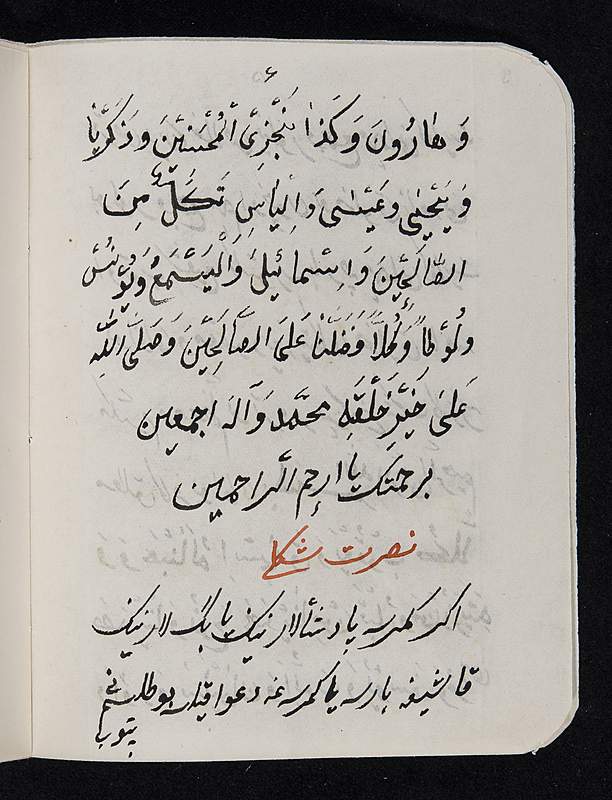 ۶
وَ هَارُونَ وَ كَذَا نَجْزِى الْمُحْسِنِيْنَ وَ ذَكَرِيَّا
وَ يَحْيٰى وَ عَيْسٰى وَ اِلْيَاسَ كُلٌّ مِنَ
الصَّالِحِيْنَ وَ اِسْمَائِيْلَ وَ الْيَسَعَ وَ يُوْنُسَ
وَ لُوْطاً وَ كُلاًّ فَضَّلْنَا عَلَى الصَّالِحِيْنَ وَ صَلَّى اللّٰهُ
عَلىَ خَيْرِ خَلْقِهِ محمَّد وَ آلهِ اجمعين
برحمتك يا ارحم الراحمين
نصرت شكلى
اكر كمرسه پادشالارنيك يا بك لارنيك
قاشيغه بارسه يا كمرسه غه دعوا قيلسه بو طلسم نى
بتوب